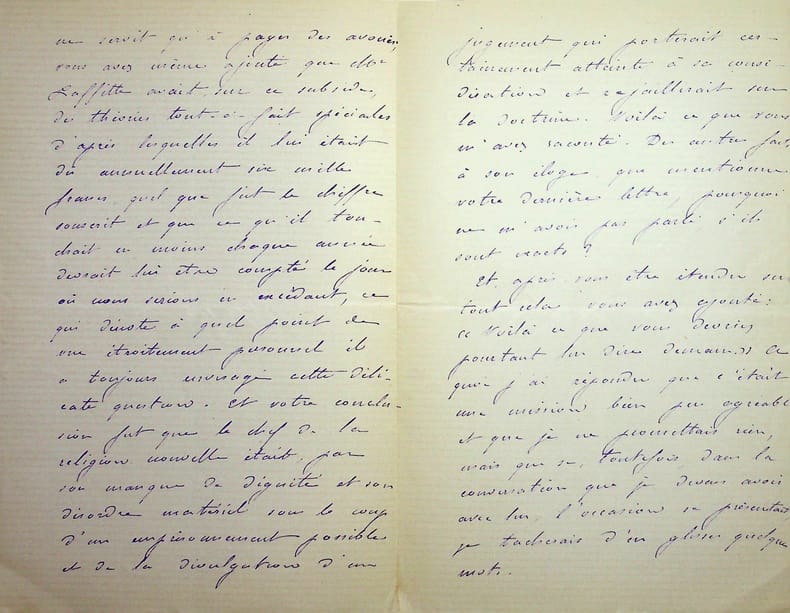 ne servit qu'à payer des avoués,
vous avez même ajouté que Mr
Laffitte avait, sur ce subside,
des théories tout-à-fait spéciales
d'après lesquelles il lui était
dû annuellement six mille
francs, quel que fut le chiffre
souscrit et que ce qu'il tou-
chait en moins chaque année
devrait lui être compté le jour
où nous serions en excédant, ce
qui dénote à quel point de
vue étroitement personnel il
a toujours envisagé cette déli-
cate question. Et votre conclu-
sion fut que le chef de la
religion nouvelle était, par
son manque de dignité et son
désordre matériel sous le coup
d'un emprisonnement possible
et de la divulgation d'un
jugement qui porterait cer-
tainement atteinte à sa consi-
dération et rejaillirait sur
la doctrine. Voilà ce que vous
m'avez raconté. Des autres faits
à son éloge que mentionne
votre dernière lettre, pourquoi
ne m'avoir pas parlé s'ils
sont exacts?
Et, après vous être étendu sur
tout cela vous avez ajouté:
« Voilà ce que vous devriez
pourtant lui dire demain » A
quoi j'ai répondu que c'était
une mission bien peu agréable
et que je ne promettais rien,
mais que si, toutefois, dans la
conversation que je devais avoir
avec lui, l'occasion se présentait
je tacherais d'en glisser quelques
mots.